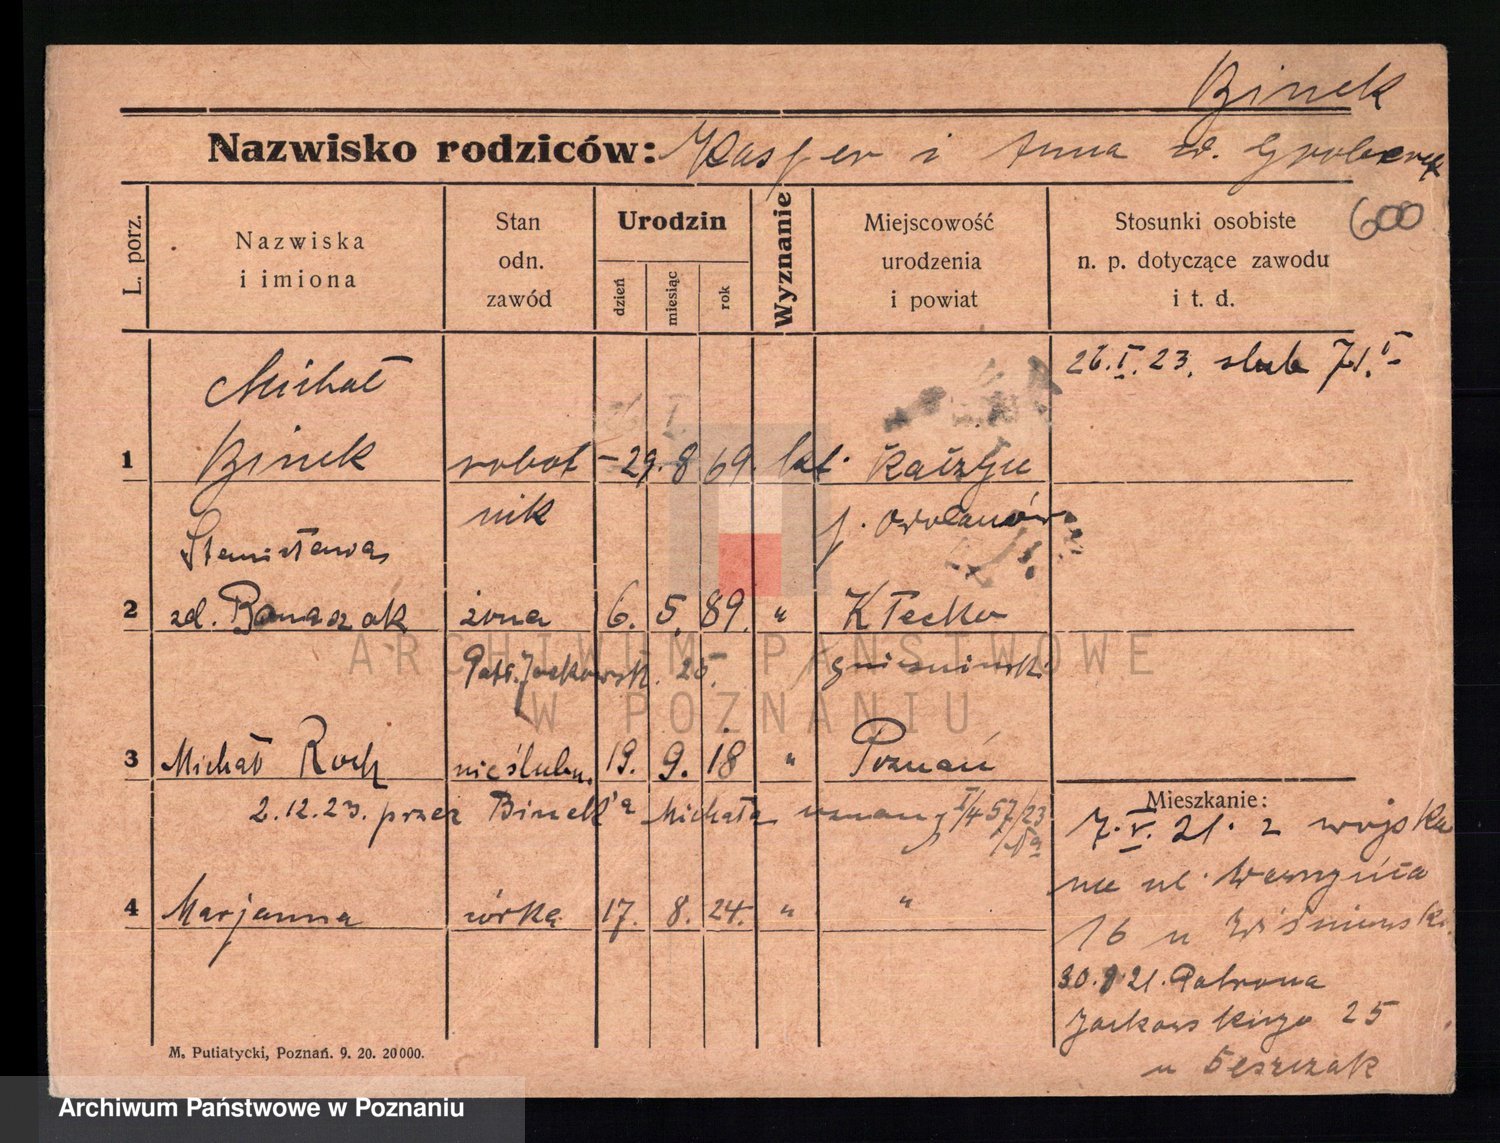 Binek
Nazwisko rodziców: Kasper i Anna
600
L. porz.
Nazwiska i imiona
Stan odn. zawód
Urodzin
dzień
miesiąc
rok
Wyznanie
Miejscowość urodzenia i powiat
Stosunki osobiste n. p. dotyczące zawodu i t. d.
26.I.23. slub
Michał
1 Binek robot- 29. 8 69. kat.
nik
Stanisława
2 zd. Banaszak żona 6. 5. 89. " Kłecko
Patr. Jackowsk. 25. gnieznienski
3 Michał Roch nieślubn. 19. 9. 18 " Poznań
2.12.23. przez Binek'a Michała uznany
4 Marjanna córka 17. 8. 24. " "
Mieszkanie:
7.V.21. z wojska
na ul. Wawrzyńca
16 u Wiśniewski
30.8 21. Patrona
Jackowskiego 25
u
M. Putiatycki, Poznań. 9. 20. 20 000.
ARCHIWUM PAŃSTWOWE
W POZNANIU
Archiwum Państwowe w Poznaniu